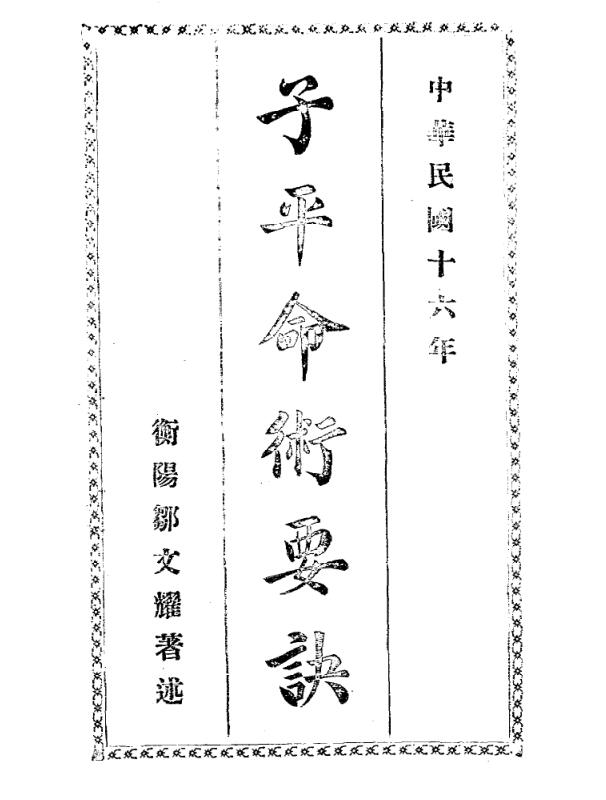 中華民國十六年
子平命術要訣
衡陽鄒文耀著述